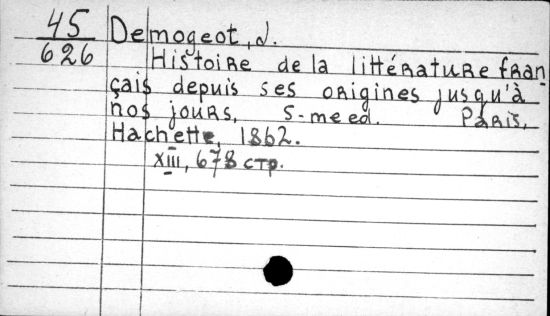 45
626
Demogeot, J.
Histoire de la littérature fran
çais depuis ses origines jusqu'à
nos jours, 5-me ed. Paris,
Hachette, 1862.
XIII, 678 стр.